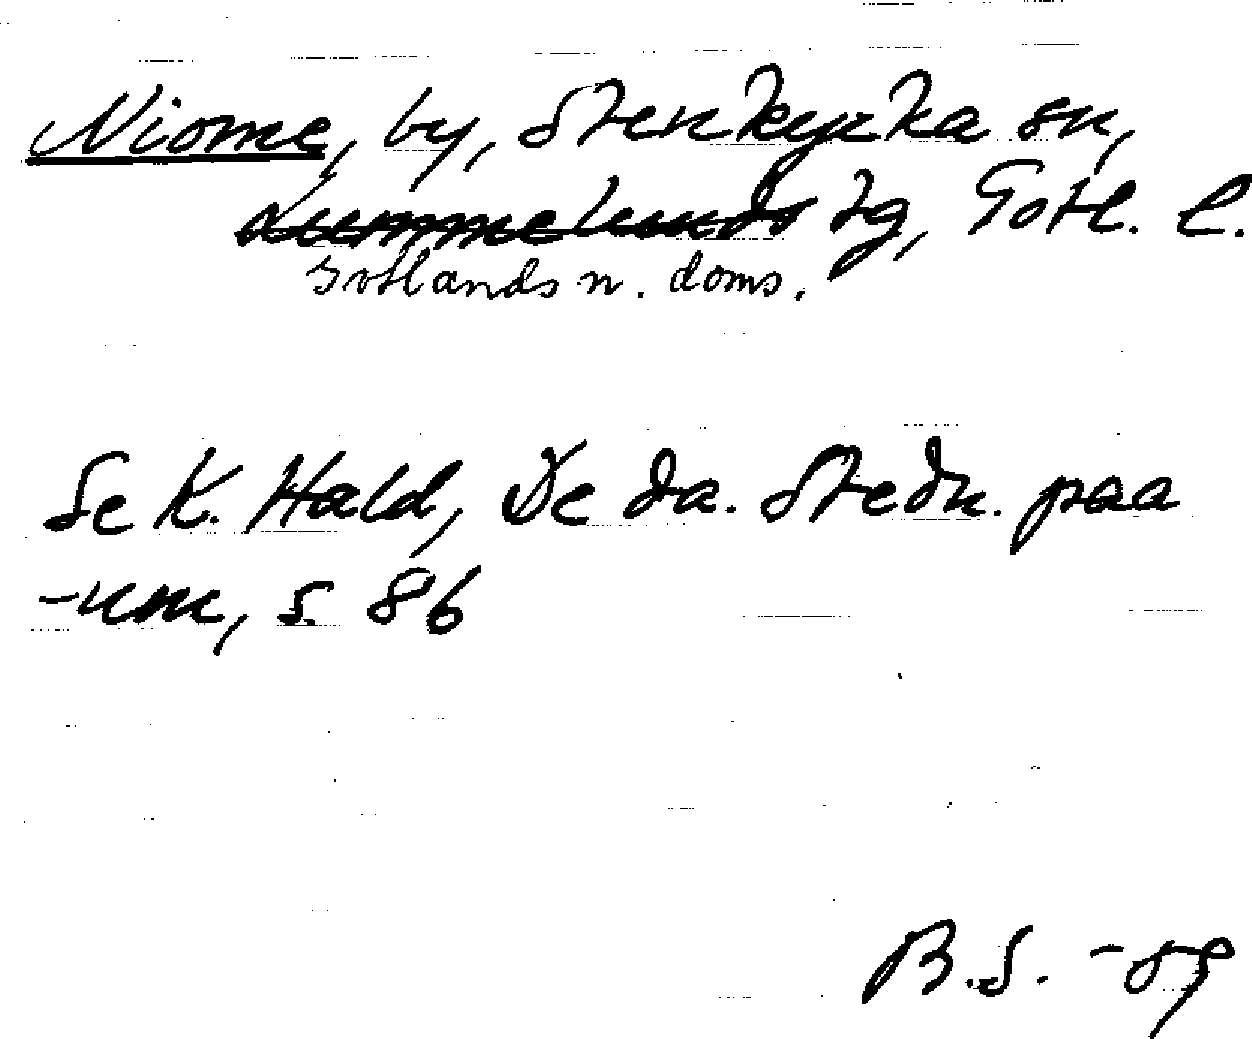 Niome, by, Stenkyrka sn,
Lummelunds tg, Gotl. l.
Gotlands n. doms.
Se K. Hald, De da. Stedn. paa
-um, s. 86
B.S. -59